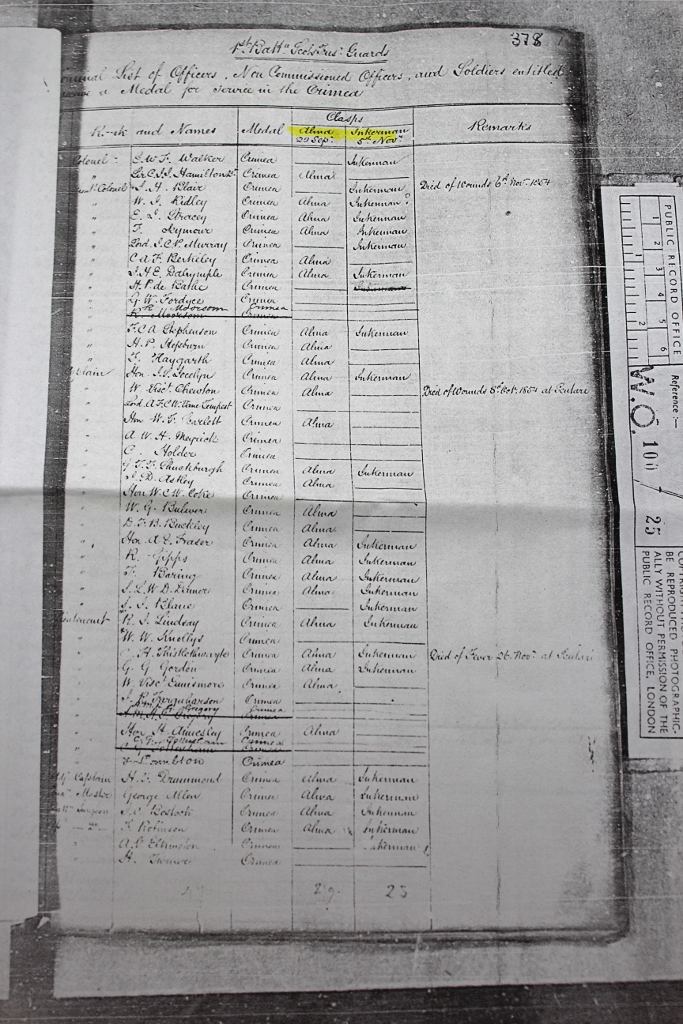 378
1st Batt.n Scots Fus.r Guards
Nominal List of Officers, Non Commissioned Officers, and Soldiers entitled
a Medal for Service in the Crimea
Clasps
Rank and Names Medal Alma Inkerman Remarks
20 Sep. 5th Nov.
Colonel E.W.F. Walker Crimea Inkerman
" Hamilton Crimea Alma
Colonel J. H. Blair Crimea Inkerman Died of Wounds 6th Nov. 1854
" W. J. Ridley Crimea Alma Inkerman ?
" Crimea Alma Inkerman
" F. Seymour Crimea Alma Inkerman
" Lord J.C.P. Murray Crimea Inkerman
" C A F. Berkeley Crimea Alma
" J.H.E. Dalrymple Crimea Alma Inkerman
" H. P. de Bathe Crimea Inkerman
" G. W. Fordyce Crimea
Moorsom Crimea
" F.C.A. Stephenson Crimea Alma Inkerman
" H. P. Hepburn Crimea Alma
" F. Haygarth Crimea Alma
Captain Hon. J. S. Jocelyn Crimea Alma Inkerman
" W. Visc.t Chewton Crimea Alma Died of Wounds 8th Oct. 1854 at Scutari
" Lord A.F.C.W. Vane Tempest Crimea
" Hon. W. F. Scarlett Crimea Alma
" A. W. H. Meyrick Crimea
" C. Holder Crimea
" G. T. F. Shuckburgh Crimea Alma Inkerman
" J. D. Astley Crimea Alma
" Hon. W. C. W. Coke Crimea
" W. G. Bulwer Crimea Alma
" D. F. B. Buckley Crimea Alma
" Hon. A. E. Fraser Crimea Alma Inkerman
" R. Gipps Crimea Alma Inkerman
" F. Baring Crimea Alma Inkerman
" Crimea Alma Inkerman
" Blane Crimea Inkerman
Lieutenant R. J. Lindsay Crimea Alma Inkerman
" W. W. Knollys Crimea
" H. Thistlethwayte Crimea Alma Inkerman Died of Fever 26. Nov. at Scutari
" G. G. Gordon Crimea Alma Inkerman
" W. Visc.t Ennismore Crimea Alma
" J. R. Farquharson Crimea
Gregory Crimea
" Hon. H. Annesley Crimea Alma
Crimea
" Crimea
Captain H. F. Drummond Crimea Alma Inkerman
Master George Allen Crimea Alma Inkerman
Surgeon J. A. Bostock Crimea Alma Inkerman
F. Robinson Crimea Alma Inkerman
A. G. Elkington Crimea Inkerman
H. Crimea
29 25
PUBLIC RECORD OFFICE
1 2 3 4 5 6
1 2
Reference :-
W.O. 100 / 25
COPYRIGHT
BE REPRODUCED PHOTOGRAPHIC-
ALLY WITHOUT PERMISSION OF THE
PUBLIC RECORD OFFICE, LONDON